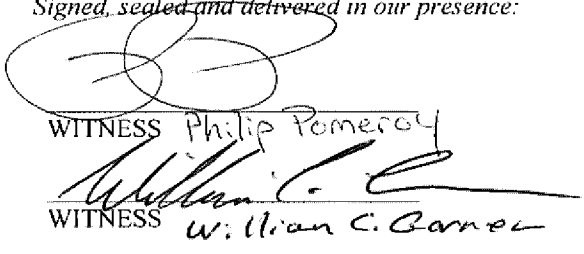 Signed, sealed and delivered in our presence:
WITNESS Philip Pomeroy
William C.
WITNESS William C. Garner